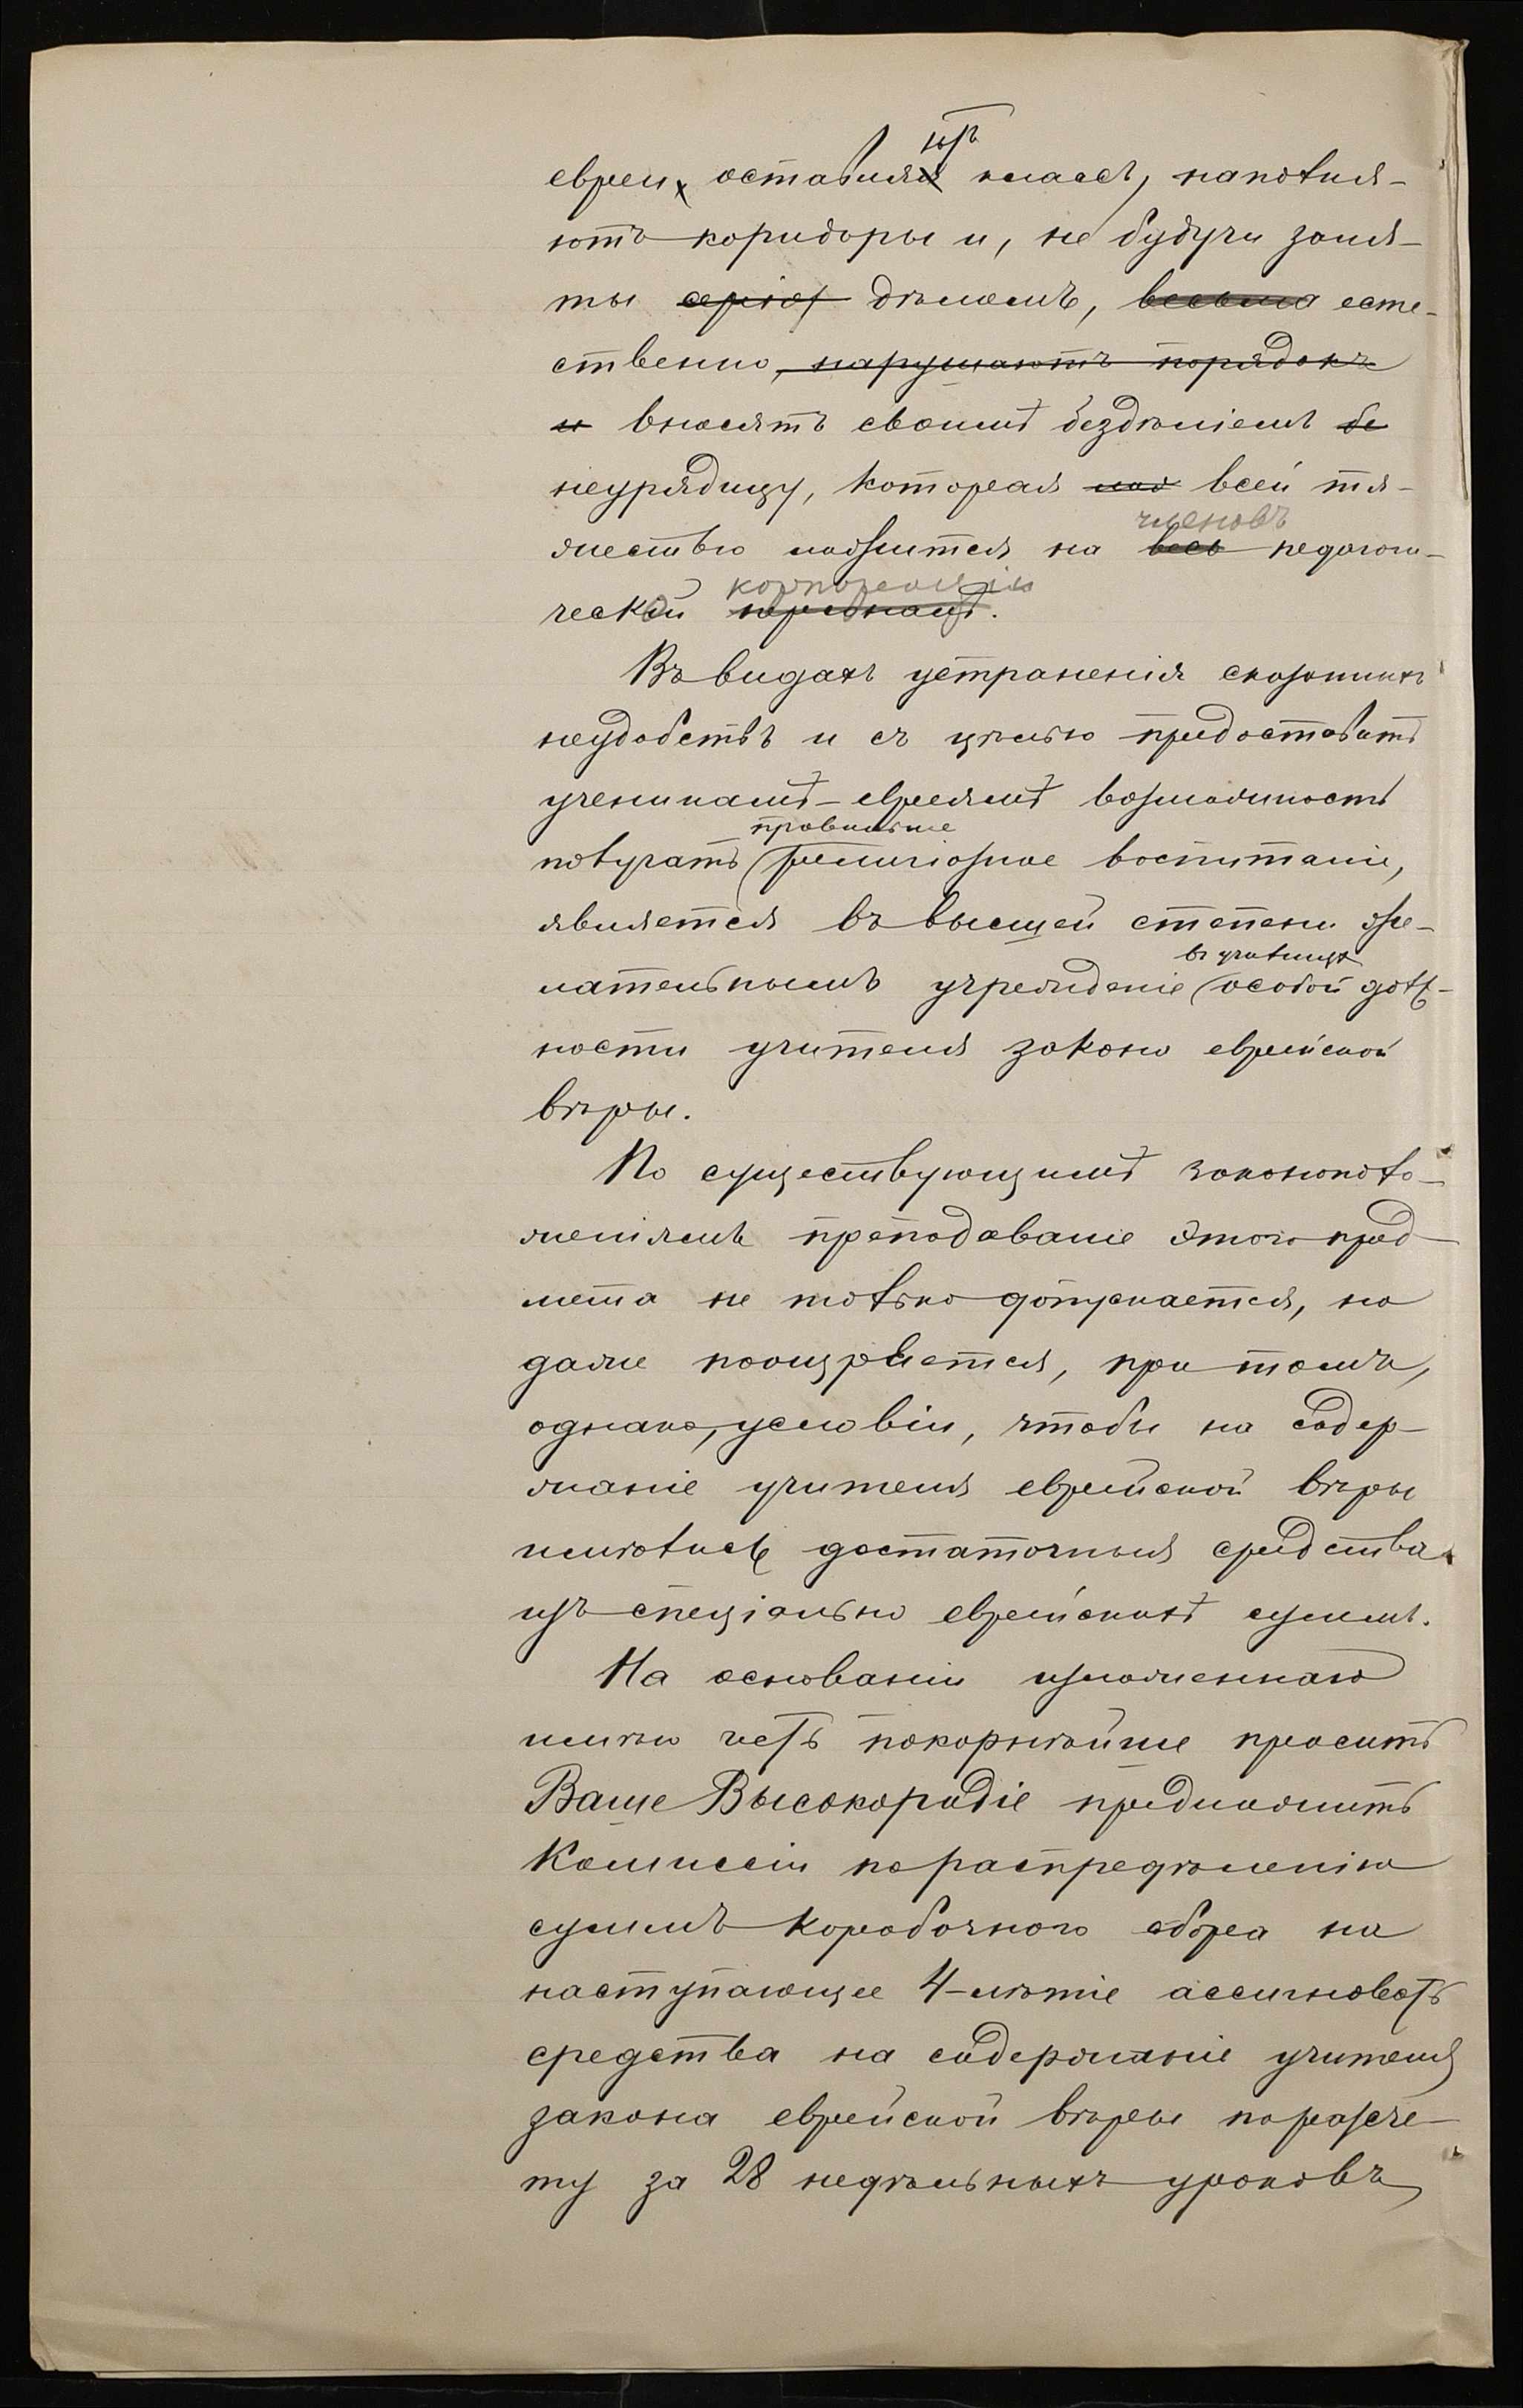 евреи, оставляютъ классъ, наполня-
ютъ коридоры и, не будучи заня-
ты серіоз дѣломъ, весьма есте-
ственно, нарушаютъ порядокъ
и вносятъ своимъ бездѣліемъ бе
неурядицу, которая лож всей тя-
членовъ
жестью ложится на весь педагоги-
корпораціи
ческой персоналъ.
Въ видахъ устраненія сказанныхъ
неудобствъ и съ цѣлью предоставить
ученикамъ-евреямъ возможность
правильное
получать религіозное воспитаніе,
является въ высшей степени же-
въ училищѣ
лательнымъ учрежденіе особой долж-
ности учителя закона еврейской
вѣры.
По существующимъ законополо-
женіямъ преподаваніе этого пред-
мета не только допускается, но
даже поощряется, при томъ,
однако, условіи, чтобы на содер-
жаніе учителя еврейской вѣры
имѣлись достаточныя средства
изъ спеціально еврейскихъ суммъ.
На основаніи изложеннаго
имѣю честь покорнѣйше просить
Ваше Высокородіе предложить
Коммиссіи по распредѣленію
суммъ коробочнаго сбора на
наступающее 4-лѣтіе ассигновать
средства на содержаніе учителя
закона еврейской вѣры по разсче-
ту за 28 недѣльныхъ уроковъ